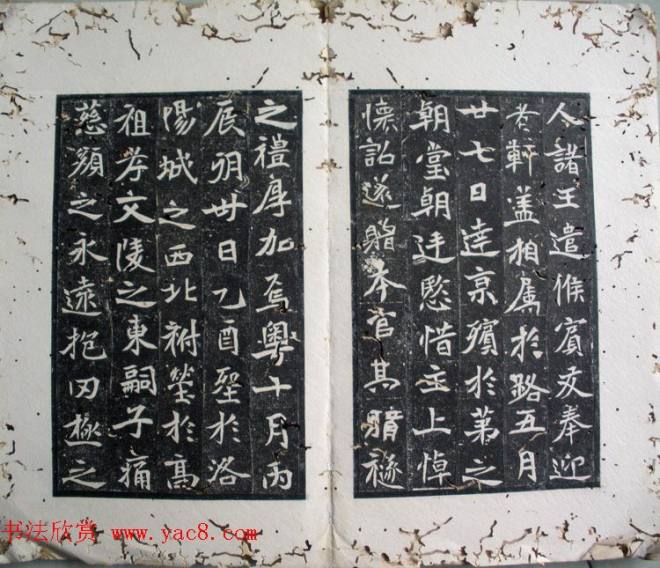 人諸王遣候賓友奉迎
者軒盖相屬於路五月
廿七日達京殯於第之
朝堂朝廷愍惜主上悼
懷詔遂贈本官其賵襚
之禮厚加焉粵十月丙
辰朔卅日乙酉壂於洛
陽城之西北祔塋於高
祖孝文陵之東嗣子痛
慈顏之永遠抱罔極之
书法欣赏 www.yac8.com